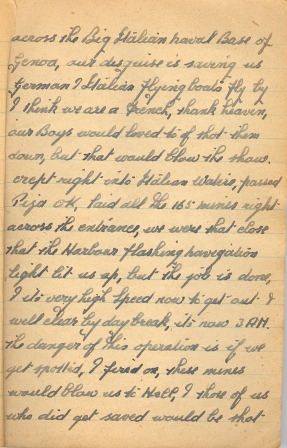 across the Big Italian naval Base of
Genoa, our disguise is saving us
German & Italian flying boats fly by
& think we are a French, thank heaven,
our Boys would loved to of shot them
down, but that would blow the show.
crept right into Italian Waters, passed
Piza O.K. laid all the 165 mines right
across the entrance, we were that close
that the Harbour flashing navigation
light lit us up, but the job is done,
& its very high speed now to get out &
well clear by day break, its now 3 AM.
the danger of this operation is if we
get spotted, & fired on, these mines
would blow us to Hell, & those of us
who did get saved would be shot